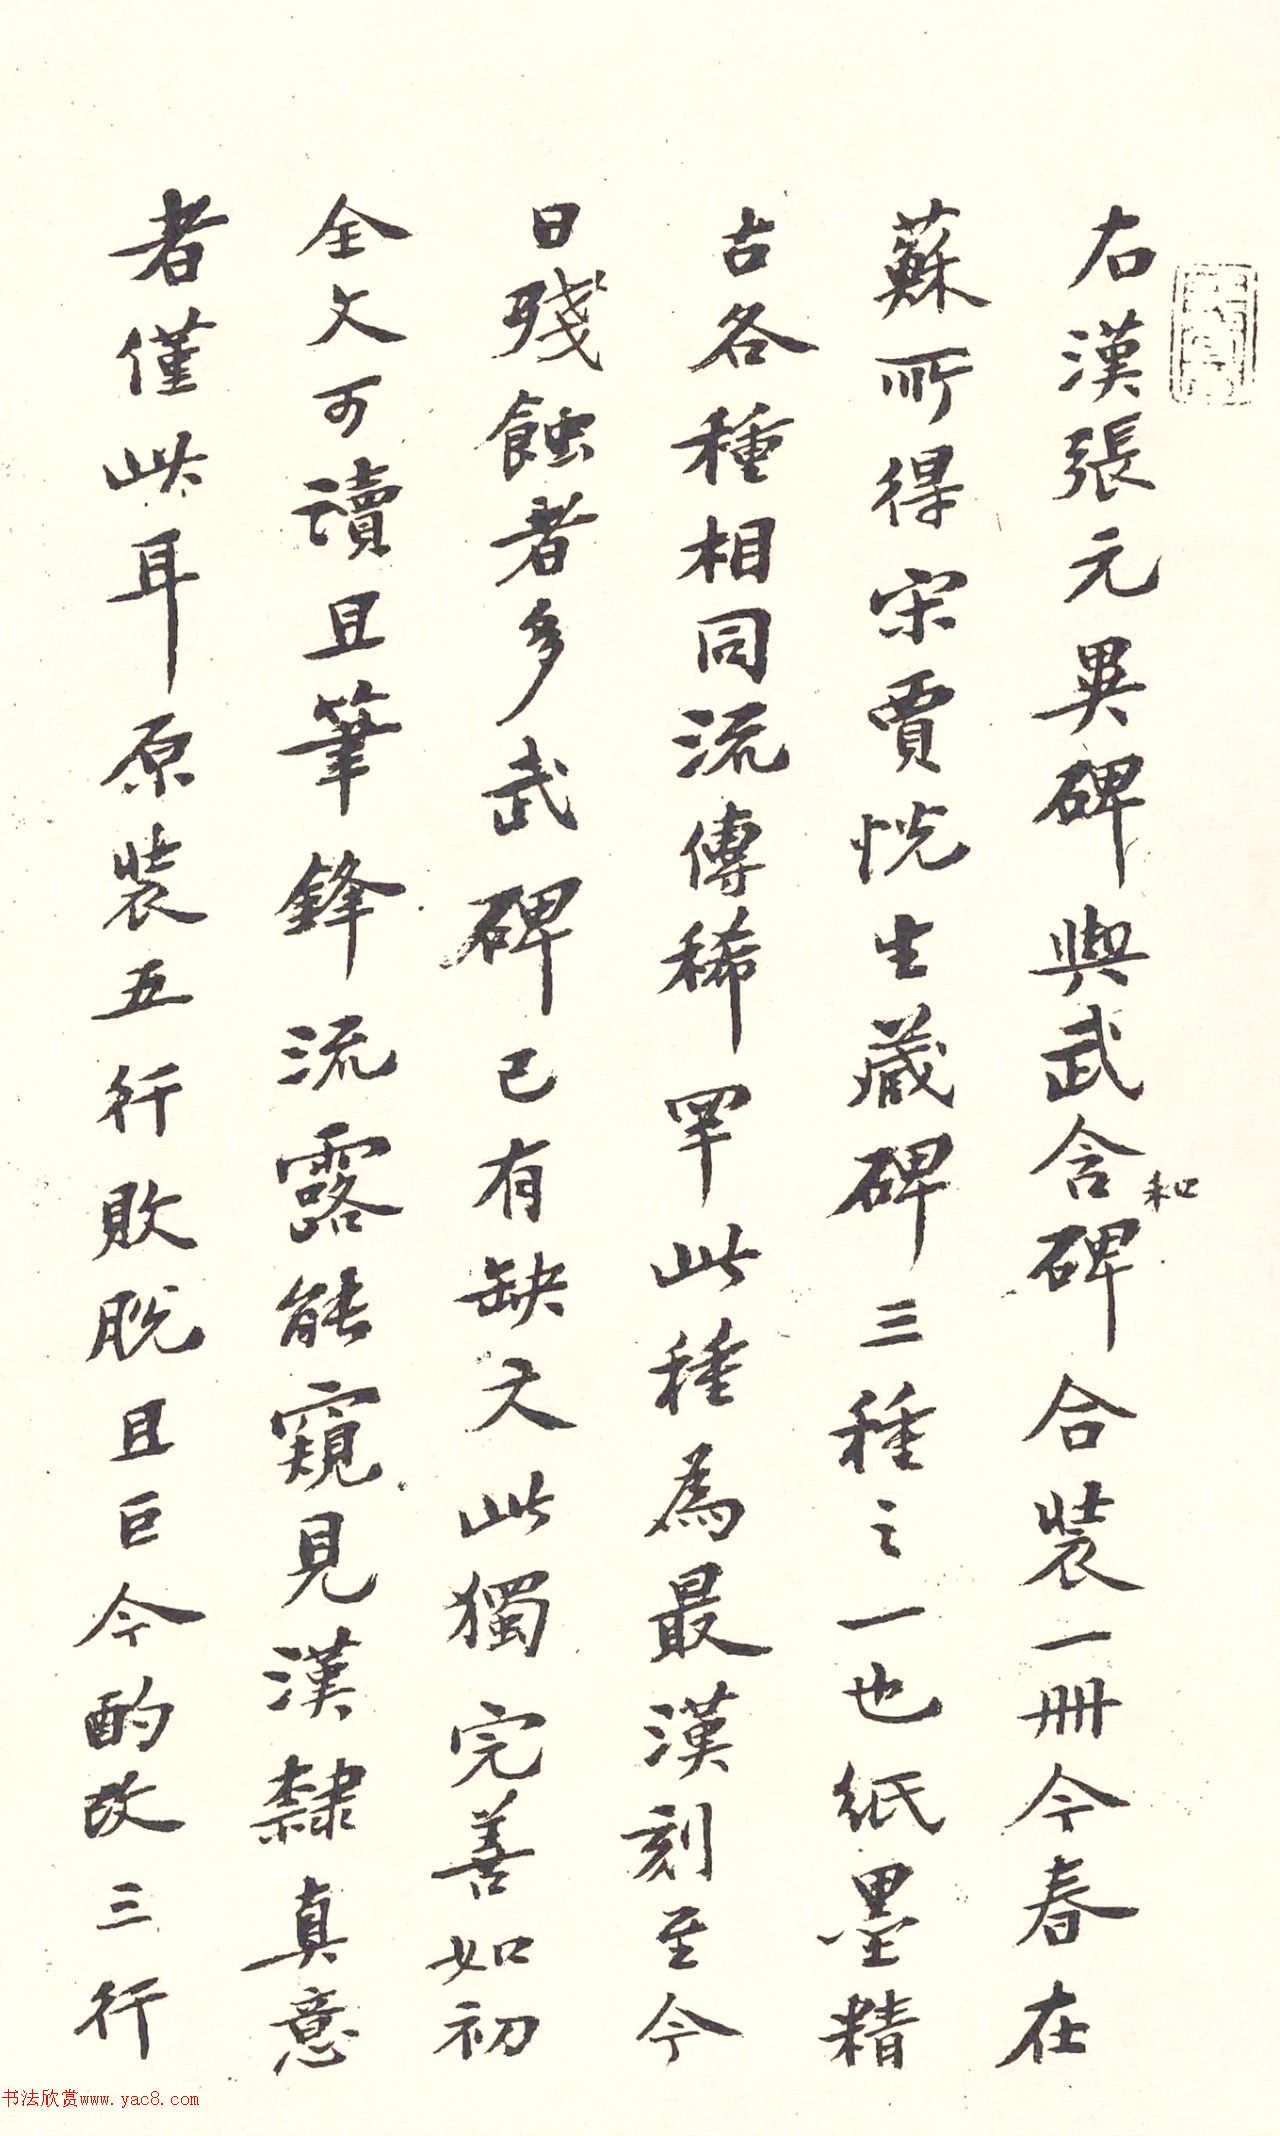 右漢張元異碑與武含和碑合裝一冊今春在
蘇所得宋賈悅生蔵碑三種之一也紙墨精
古各種相同流傳稀罕此種為最漢刻至今
日殘蝕者多武碑已有缺文此獨完善如初
全文可讀且筆鋒流露能窺見漢隸真意
者僅此耳原裝五行敗脫且巨今酌改三行
书法欣赏www.yac8.com